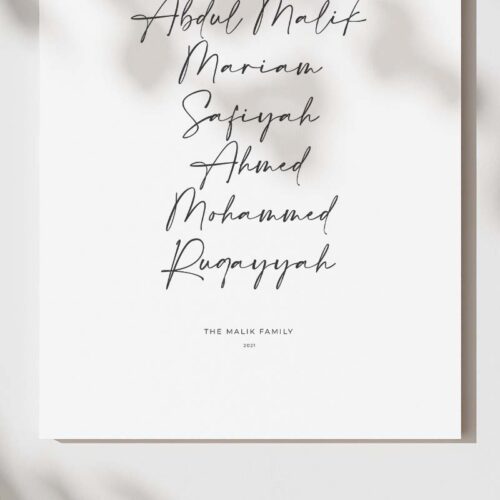 Abdul Malik
Mariam
Safiyah
Ahmed
Mohammed
Ruqayyah
THE MALIK FAMILY
2021